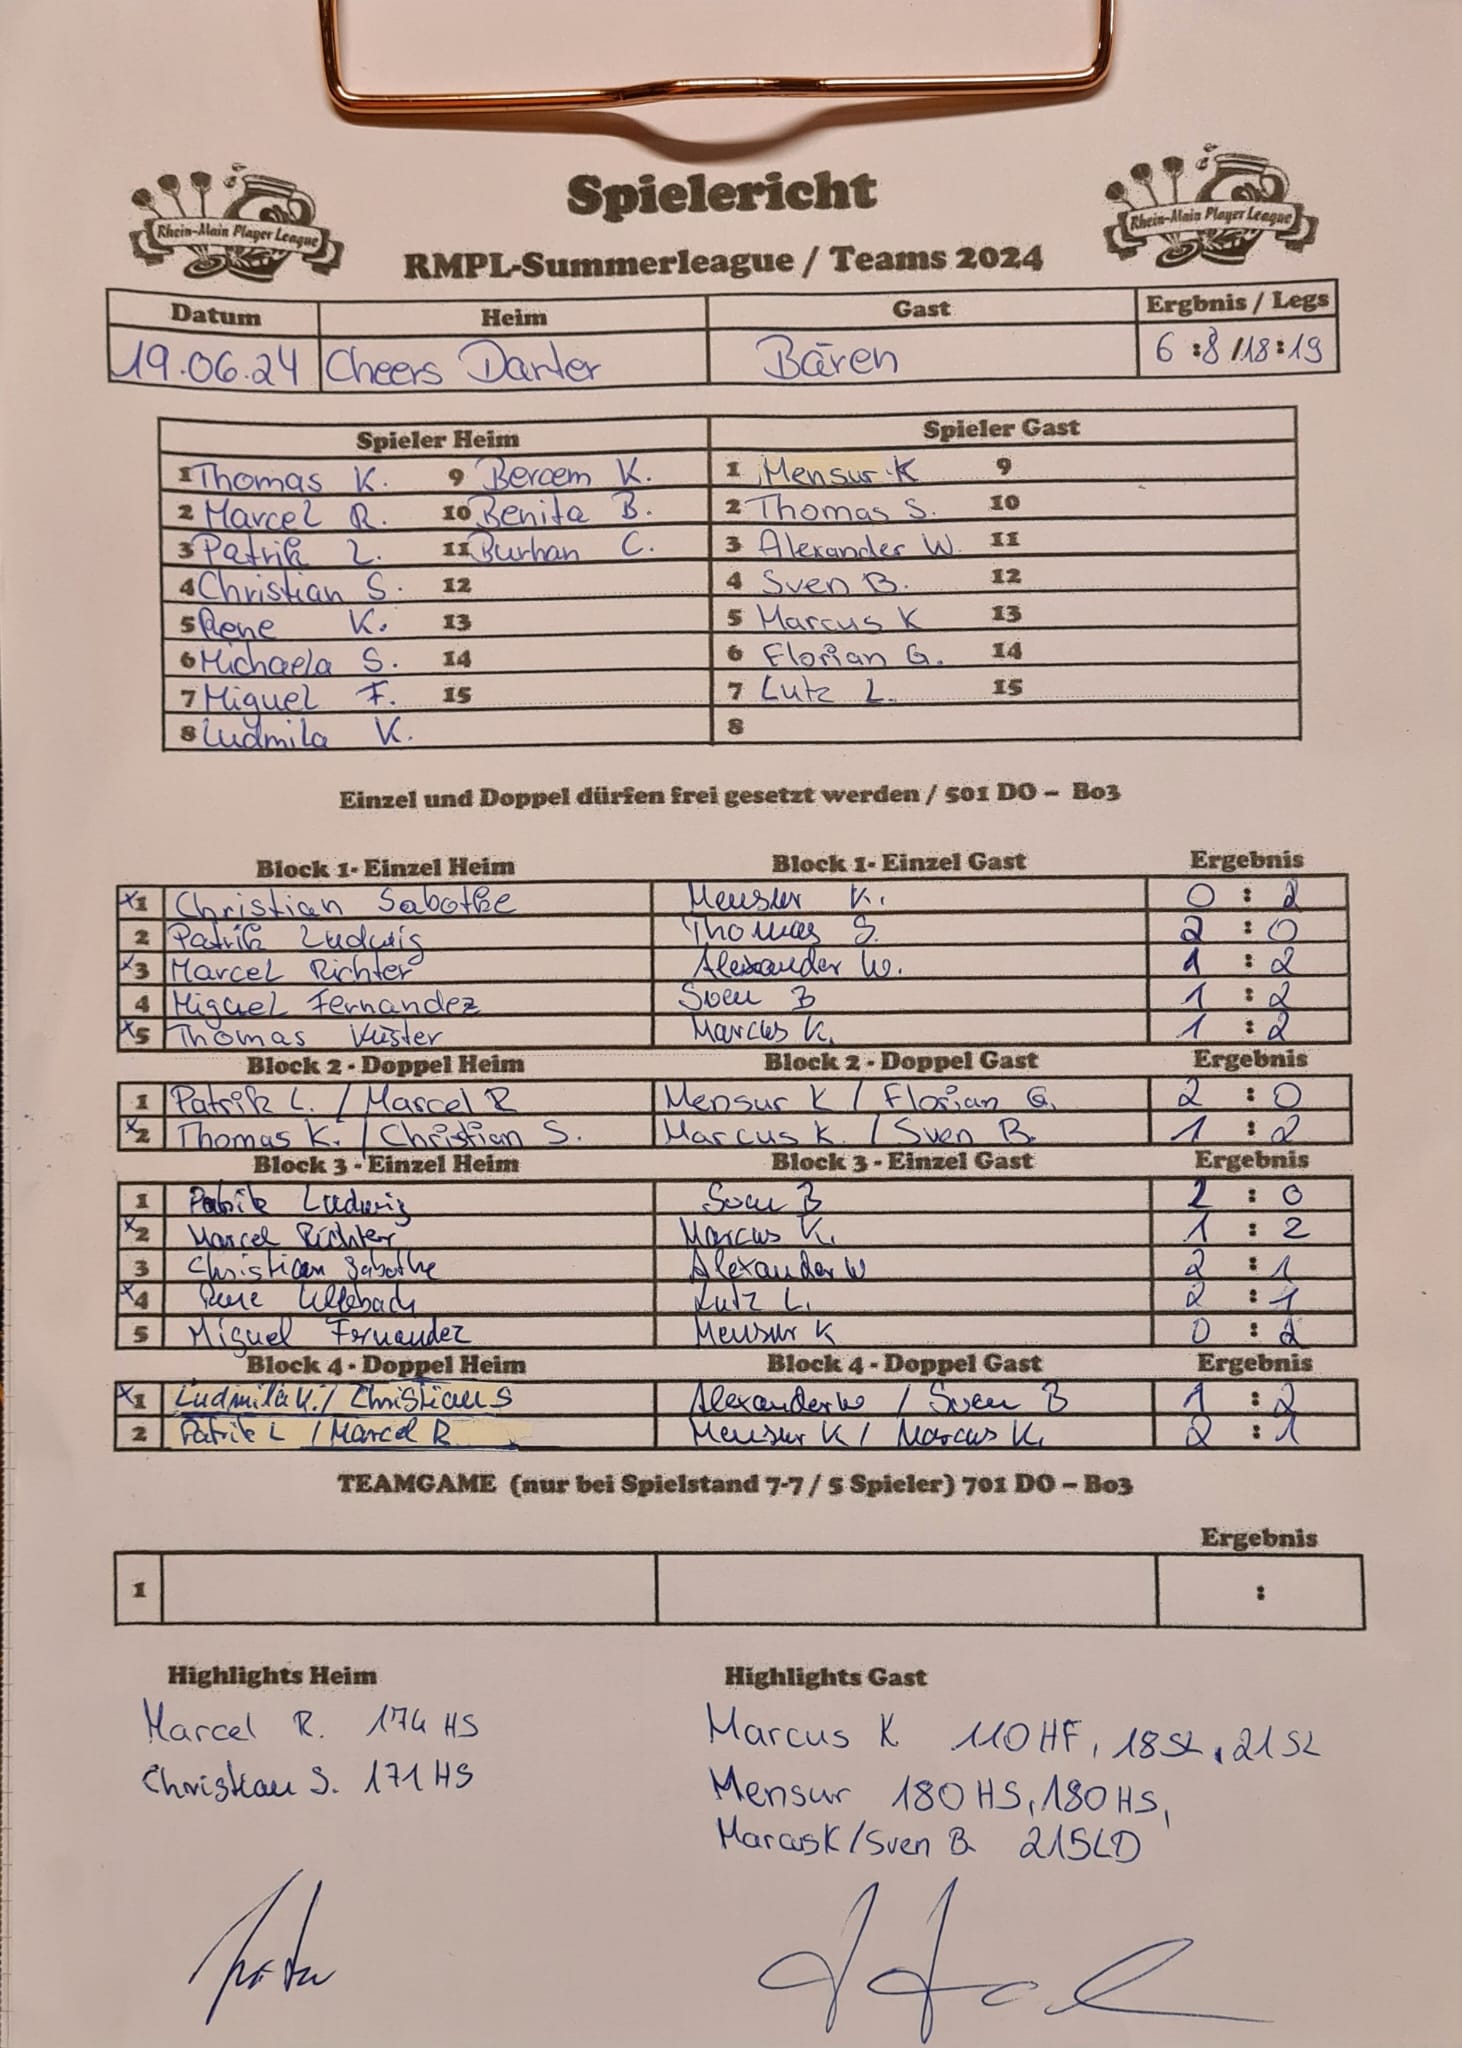 Rhein-Main Player League
Spielericht
Rhein-Main Player League
RMPL-Summerleague / Teams 2024
Datum Heim Gast Ergbnis / Legs
19.06.24 Cheers Darter Bären 6 :8 /18:19
Spieler Heim Spieler Gast
1 Thomas K. 9 Bercem K. 1 Mensur K 9
2 Marcel R. 10 Benita B. 2 Thomas S. 10
3 Patrik L. 11 Burhan C. 3 Alexander W. 11
4 Christian S. 12 4 Sven B. 12
5 Rene K. 13 5 Marcus K 13
6 Michaela S. 14 6 Florian G. 14
7 Miguel F. 15 7 Lutz L. 15
8 Ludmila K. 8
Einzel und Doppel dürfen frei gesetzt werden / 501 DO – Bo3
Block 1- Einzel Heim Block 1- Einzel Gast Ergebnis
x1 Christian Sabothe K. 0 : 2
2 Patrik Ludwig Thomas S. 2 : 0
x3 Marcel Richter Alexander W. 1 : 2
4 Miguel Fernandez Sven B 1 : 2
x5 Thomas Küster Marcus K. 1 : 2
Block 2 - Doppel Heim Block 2 - Doppel Gast Ergebnis
1 Patrik L. / Marcel R Mensur K / Florian G. 2 : 0
x2 Thomas K. / Christian S. Marcus K. / Sven B. 1 : 2
Block 3 - Einzel Heim Block 3 - Einzel Gast Ergebnis
1 Patrik Ludwig Sven B 2 : 0
x2 Marcel Richter Marcus K. 1 : 2
3 Christian Sabothe Alexander W 2 : 1
x4 Rene Lutz L. 2 : 1
5 Miguel Fernandez Mensur K 0 : 2
Block 4 - Doppel Heim Block 4 - Doppel Gast Ergebnis
x1 Ludmila K. / Christian S Alexander W / Sven B 1 : 2
2 Patrik L / Marcel R. Mensur K / Marcus K. 2 : 1
TEAMGAME (nur bei Spielstand 7-7 / 5 Spieler) 701 DO – Bo3
Ergebnis
1 :
Highlights Heim Highlights Gast
Marcel R. 174 HS Marcus K 110 HF, 18SL, 21 SL
Christian S. 171 HS Mensur 180 HS, 180 HS,
Marcus K / Sven B. 21SLD